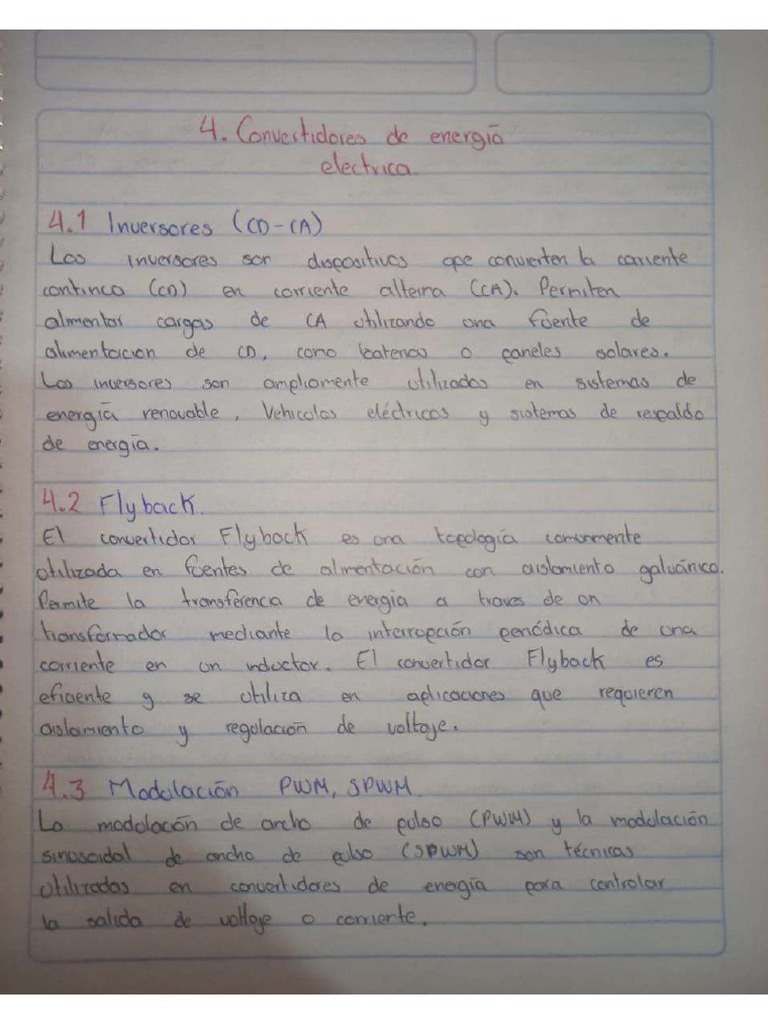 4. Convertidores de energía
electrica.
4.1 Inversores (CD-CA)
Los inversores son dispositivos que convierten la corriente
continua (CD) en corriente alterna (CA). Permiten
alimentar cargas de CA utilizando una fuente de
alimentacion de CD, como baterias o paneles solares.
Los inversores son ampliamente utilizados en sistemas de
energía renovable, Vehiculos eléctricos y sistemas de respaldo
de energía.
4.2 Flyback.
El convertidor Flyback es una topología comunmente
utilizada en fuentes de alimentación con aislamiento galvánico.
Permite la transferenca de energia a traves de un
transformador mediante la interrupción periódica de una
corriente en un inductor. El convertidor Flyback es
eficiente y se utiliza en aplicaciones que requieren
aislamiento y regulación de voltaje.
4.3 Modulación PWM, SPWM.
La modulación de ancho de pulso (PWM) y la modulación
sinusoidal de ancho de pulso (SPWM) son técnicas
utilizadas en convertidores de energía para controlar
la salida de voltaje o corriente.